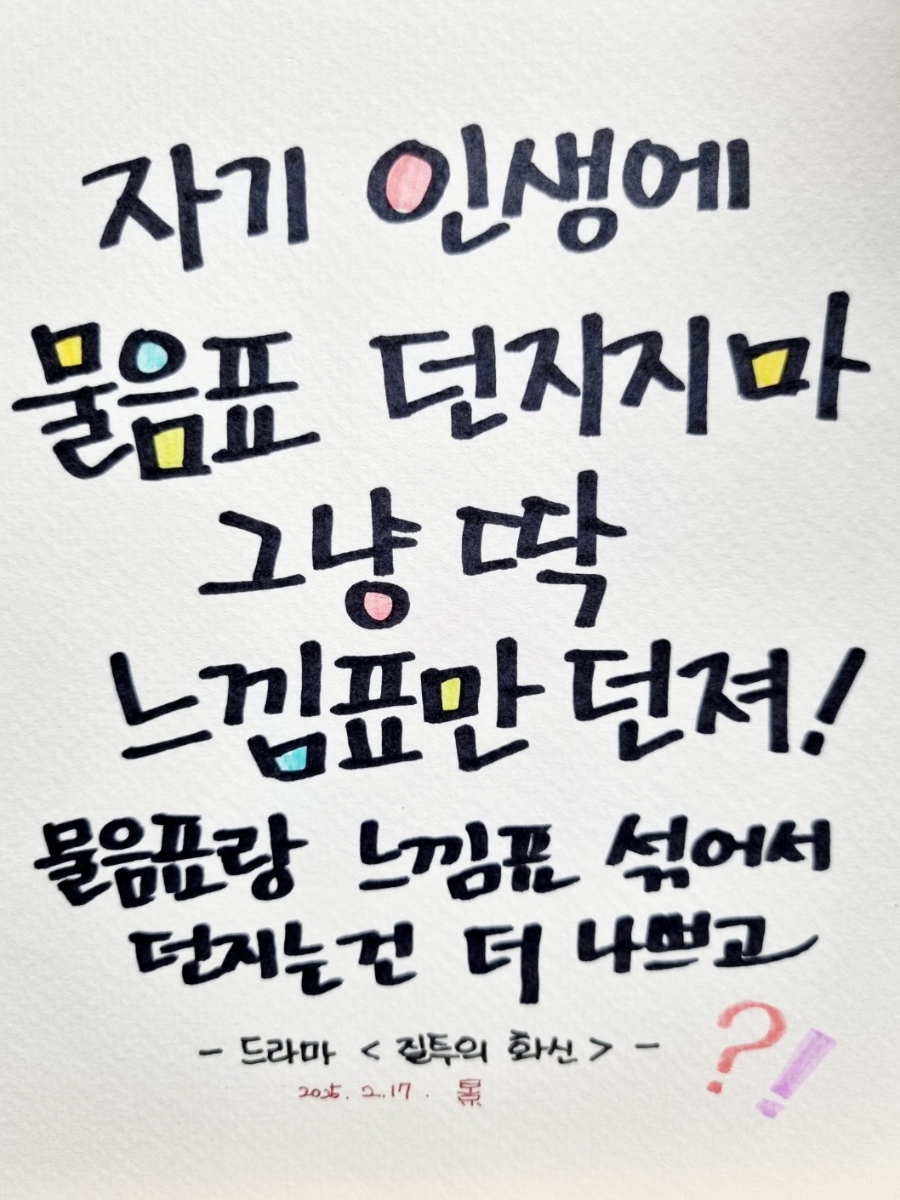 자기 인생에
물음표 던지지마
그냥 딱
느낌표만 던져!
물음표랑 느낌표 섞어서
던지는건 더 나쁘고
- 드라마 < 질투의 화신 > -
?!
2025. 2.17.